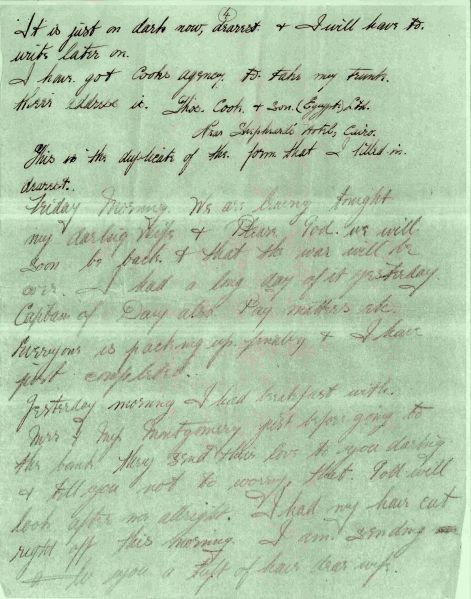 (4)
It is just on dark now, dearest. & I will have to
write later on.
I have got Cooks agency, to take my trunk.
Their address is. Thos. Cook. & Son. (Egypt) Ltd.
Near Shepheards Hotel, Cairo.
This is the duplicate of the form that I filled in.
dearest.
Friday Morning. We are leaving tonight
my darling wife & Please God. we will
soon be back. & that the war will be
over. I had a long day of it yesterday
Captain of Day also. Pay matters etc.
Everyone is packing up finally & I have
just completed.
Yesterday morning I had breakfast with.
Mrs & Mr Montgomery just before going to
the bank they send their love to you darling
& tell you not to worry, that. God will
look after me allright. I had my hair cut
right off this morning. I am sending
to you a tuft of hair dear wife.